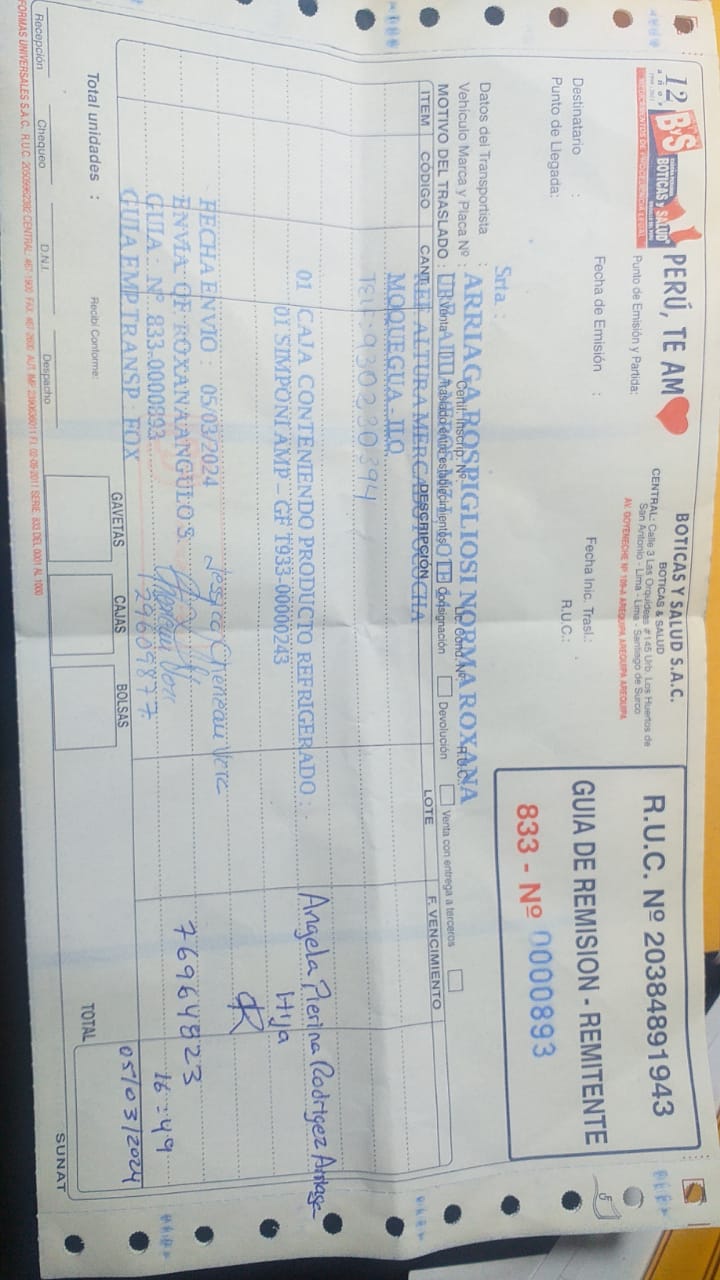 12
años
ByS
BOTICAS y SALUD
MEDICAMENTOS DE PROCEDENCIA LEGAL
PERÚ, TE AM
BOTICAS Y SALUD S.A.C.
BOTICAS & SALUD
CENTRAL: Calle 3 Las Orquideas # 145 Urb. Los Huertos de
San Antonio - Lima - Lima - Santiago de Surco
AV. GOYENECHE Nº 109-A AREQUIPA AREQUIPA AREQUIPA
R.U.C. Nº 20384891943
GUIA DE REMISION - REMITENTE
833 - Nº 0000893
Punto de Emisión y Partida:
Fecha de Emisión :
Fecha Inic. Trasl.:
Destinatario :
R.U.C.:
Punto de Llegada:
Srta :
Datos del Transportista :
ARRIAGA ROSPIGLIOSI NORMA ROXANA
Vehículo Marca y Placa Nº :
Certif. Inscrip. Nº:
Lic. Cond. Nº:
R.U.C.
MOTIVO DEL TRASLADO : Venta Traslado entre establecimientos Consignación Devolución Venta con entrega a terceros
ITEM CÓDIGO CANT. DESCRIPCIÓN LOTE F. VENCIMIENTO
REF ALTURA MERCADO POCOCHA
MOQUEGUA - ILO
TELF: 930230394
01 CAJA CONTENIENDO PRODUCTO REFRIGERADO :
01 SIMPONI AMP – GF 1933-00000243
Angela Pierina Rodrigez Arriaga
Hija
FECHA ENVIO : 05/03/2024
Jessica Chereau Vera
ENVIA QF ROXANA ANGULO S.
76964823
GUIA : Nº 833-0000893
16:49
GUIA EMP TRANSP - FOX
129609877
05/03/2024
Total unidades :
Recibí Conforme:
GAVETAS
CAJAS
BOLSAS
TOTAL
Recepción
Chequeo
D.N.I.
Despacho
SUNAT
FORMAS UNIVERSALES S.A.C. R.U.C.